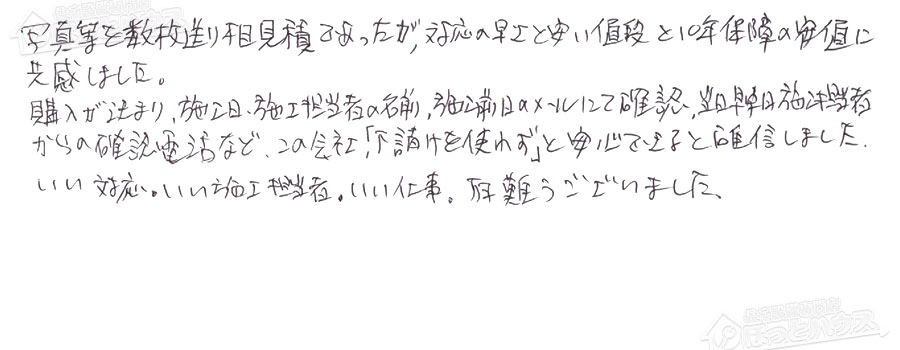 写真等を数枚送り相見積であったが、対応の早さと安い値段と10年保障の安値に
共感しました。
購入が決まり、施工日、施工担当者の名前、施工前日のメールにて確認、当日早朝施工担当者
からの確認電話など、この会社「下請けを使わず」と安心できると確信しました。
いい対応。いい施工担当者。いい仕事。有難うございました。